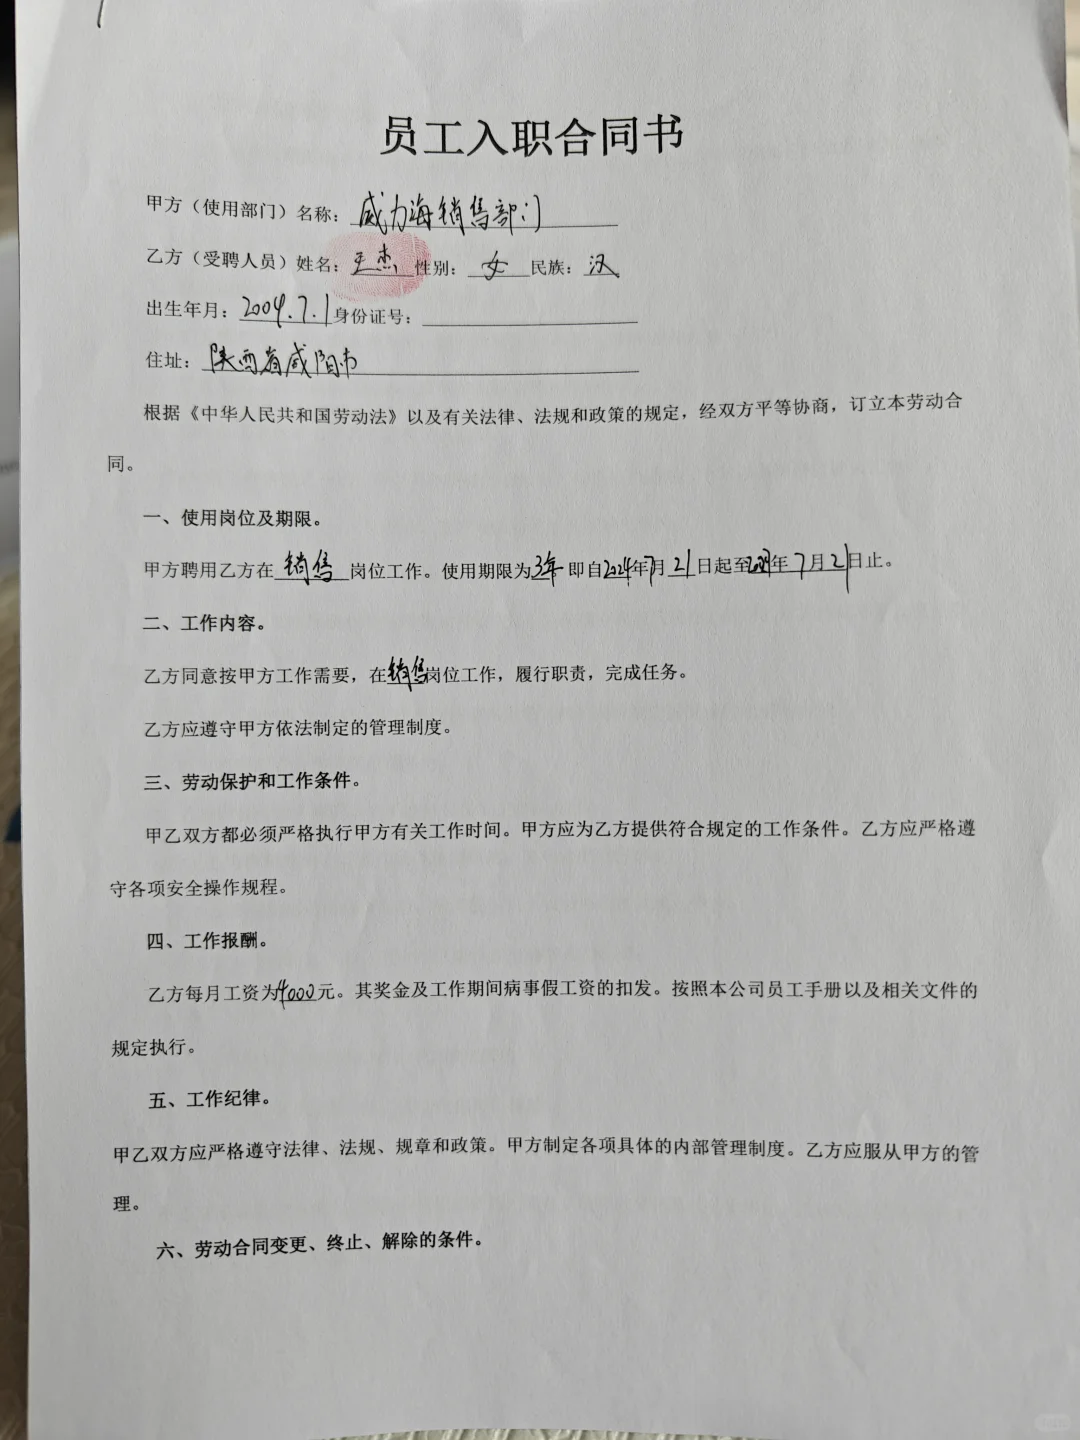 员工入职合同书
甲方（使用部门）名称：威力海销售部门
乙方（受聘人员）姓名：王杰 性别：女 民族：汉
出生年月：2004.7.1 身份证号：
住址：陕西省咸阳市
根据《中华人民共和国劳动法》以及有关法律、法规和政策的规定，经双方平等协商，订立本劳动合
同。
一、使用岗位及期限。
甲方聘用乙方在 销售 岗位工作。使用期限为3年 即自2024年7月21日起至 年7月21日止。
二、工作内容。
乙方同意按甲方工作需要，在销售岗位工作，履行职责，完成任务。
乙方应遵守甲方依法制定的管理制度。
三、劳动保护和工作条件。
甲乙双方都必须严格执行甲方有关工作时间。甲方应为乙方提供符合规定的工作条件。乙方应严格遵
守各项安全操作规程。
四、工作报酬。
乙方每月工资为4000元。其奖金及工作期间病事假工资的扣发。按照本公司员工手册以及相关文件的
规定执行。
五、工作纪律。
甲乙双方应严格遵守法律、法规、规章和政策。甲方制定各项具体的内部管理制度。乙方应服从甲方的管
理。
六、劳动合同变更、终止、解除的条件。